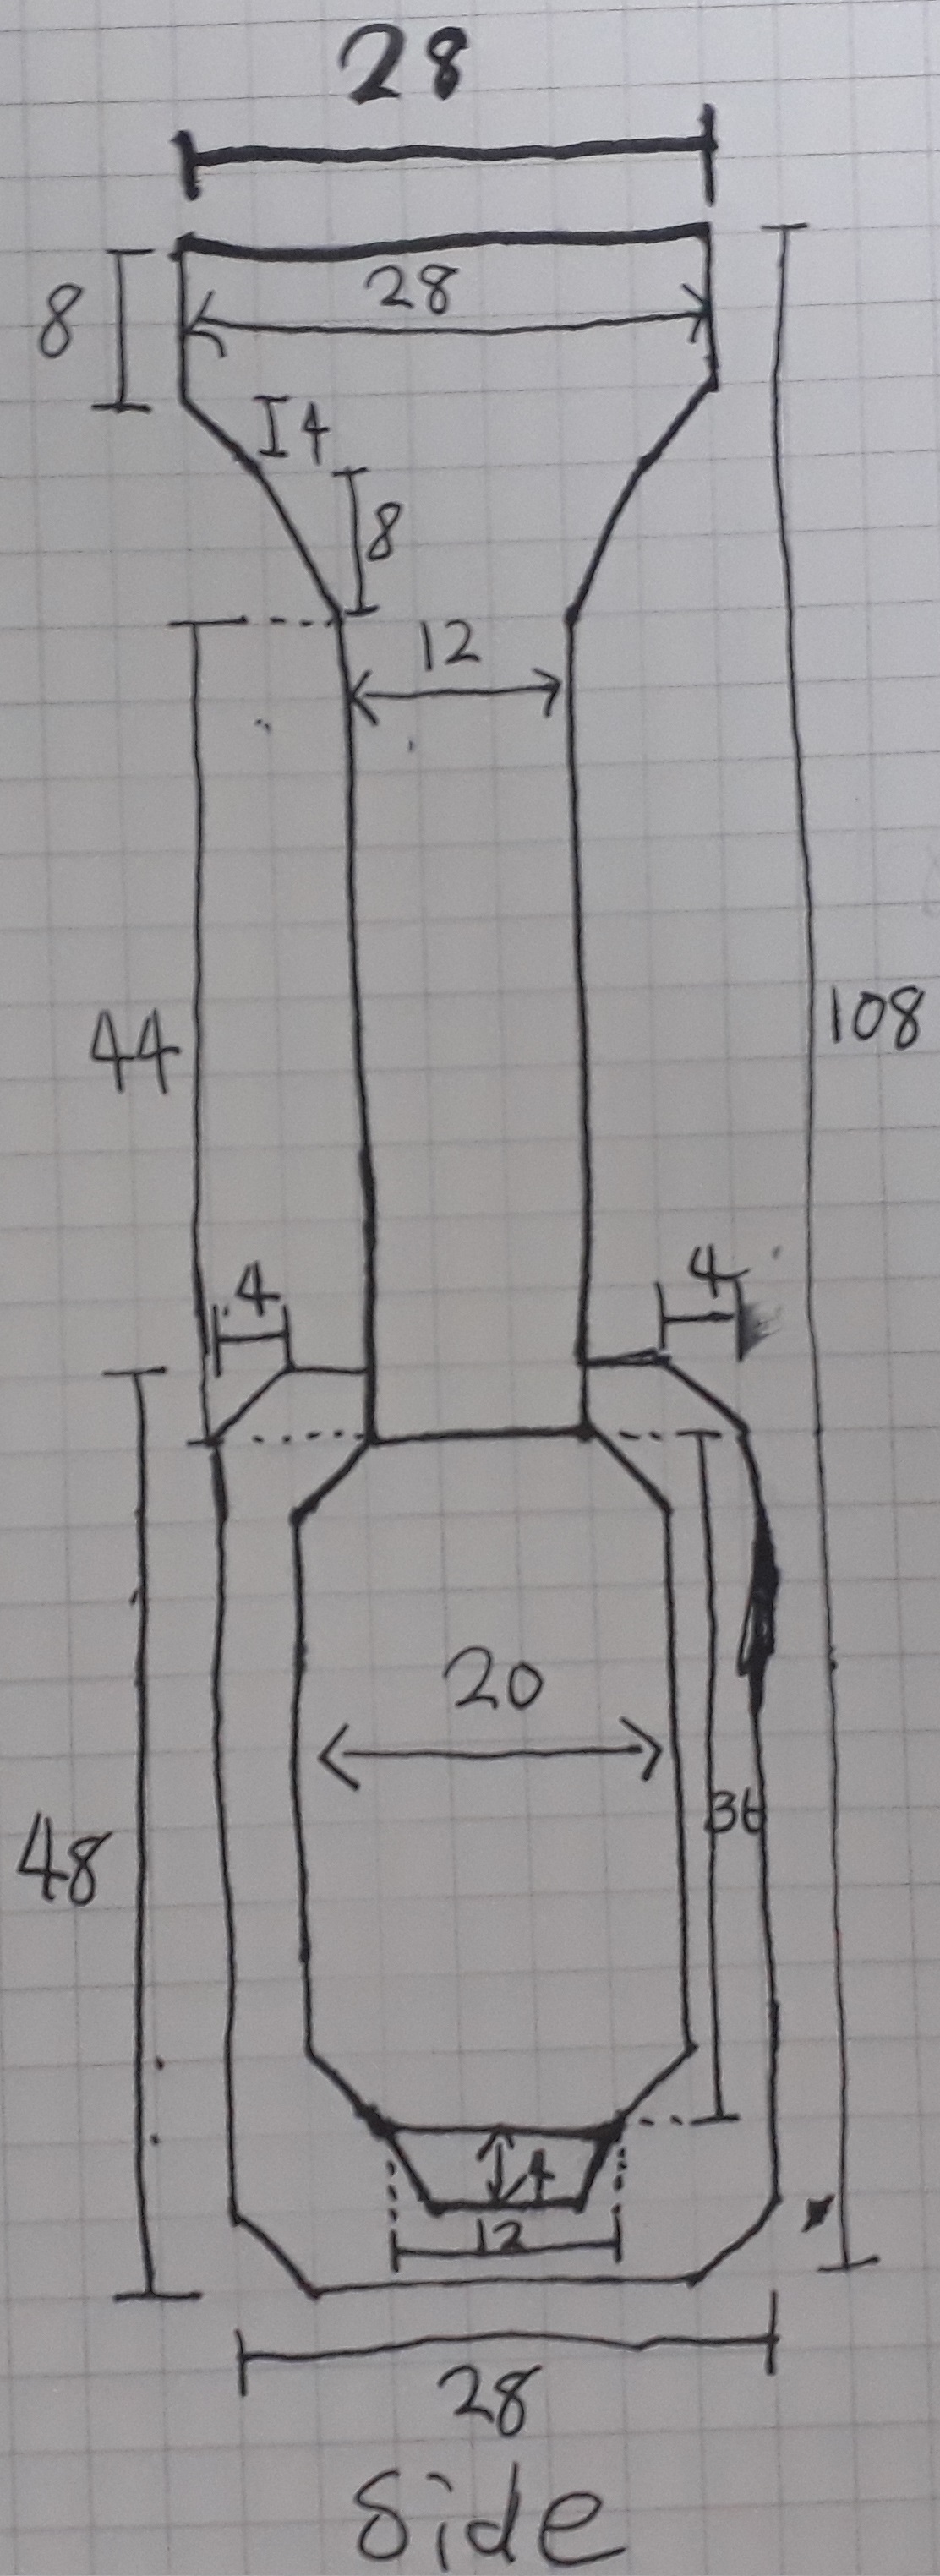 28
28
8
4
8
12
44
108
4
4
20
36
48
4
12
28
Side